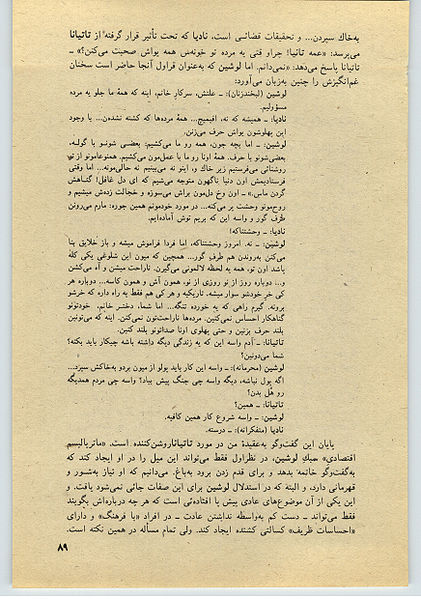 به‌خاك سپردن... و تحقیقات قضائی است، نادیا که تحت تأثیر قرار گرفته از تاتیانا
می‌پرسد: «عمه تانیا! چراو قتی یه مرده تو خونه‌س همه یواش صحبت می‌کنن؟» ـ
تاتیانا پاسخ می‌دهد: «نمی‌دانم. اما لوشین که به‌عنوان قراول آنجا حاضر است سخنان
غم‌انگیزش را چنین به‌زبان می‌آورد:
لوشین (لبخندزنان): ـ علتش، سرکار خانم، اینه که همهٔ ما جلو یه مرده
مسؤولیم.
نادیا: ـ همیشه که نه، افیمیچ... همهٔ مرده‌ها که کشته نشده‌ن... با وجود
این پهلوشون یواش حرف می‌زنن.
لوشین: ـ اما بچه جون، همه رو ما می‌کشیم: بعضی شونو با گوله،
بعضی‌شونو با حرف. همهٔ اونا رو ما با عمل‌مون می‌کشیم. همنوعامونو از تو
روشنائی می‌فرستیم زیر خاك و، اینو نه می‌بینیم نه حالی‌مونه... اما وقتی
فرستادیمش اون دنیا ناگهون متوجه می‌شیم که ای دل غافل! گناهش
گردن ماس.» ـ اون وخ دل‌مون براش می‌سوزه و خجالت زده‌ش میشیم و
روح‌مونو وحشت پر می‌کنه... در مورد خودمونم همین جوره: مارم می‌رونن
طرف گور و واسه این که بریم توش آماده‌ایم.
نادیا: ـ وحشتناکه!
لوشین: ـ نه. امروز وحشتناکه، اما فردا فراموش میشه و باز خلایق بنا
می‌کنن به‌روندن هم طرف گور... همچین که میون این شلوغی یکی کله
پاشد اون تو، همه یه لحظه لالمونی می‌گیرن. ناراحت میشن و آه می‌کشن
و... دوباره روز از نو روزی از نو، همون آش و همون کاسه... دوباره هر
کی خر خودشو سوار میشه. تاریکیه و هر کی هم فقط یه راه داره که خرشو
برونه. گیرم راهی که یه خورده تنگه... اما شما، دختر خانم، خودتونو
گناهکار احساس نمی‌کنین، مرده‌ها ناراحت‌تون نمی‌کنن. اینه که می‌تونین
بلند حرف بزنین و حتی پهلوی اونا صداتونو بلند کنین.
تاتیانا: ـ آدم واسه این که یه زندگی دیگه داشته باشه چیکار باید بکنه؟
شما می‌دونین؟
لوشین (محرمانه): ـ واسه این کار باید پولو از میون بردو به‌خاکش سپرد...
اگه پول نباشه، دیگه واسه چی جنگ پیش بیاد؟ واسه چی مردم همدیگه
رو هل بدن؟
تاتیانا: ـ همین؟
لوشین: ـ واسه شروع کار همین کافیه.
نادیا (متفکرانه): ـ درسته.
پایان این گفت‌وگو به‌عقیدهٔ من در مورد تاتیانا روشن‌کننده است. «ماتریالیسم
اقتصادی» سبك لوشین، در نظراول فقط می‌تواند این میل را در او ایجاد کند که
به‌گفت‌وگو خاتمه بدهد و برای قدم زدن برود به‌باغ. می‌دانیم که او نیاز به‌شور و
قهرمانی دارد، و البته که در استدلال لوشین برای این صفات جائی نمی‌شود یافت. و
این یکی از آن موضوع‌های عادی پیش پا افتاده‌ئی است که هر چه درباره‌اش بگویند
فقط می‌تواند ـ دست کم به‌واسطه نداشتن عادت ـ در افراد «با فرهنگ» و دارای
«احساسات ظریف» کسالتی کشنده ایجاد کند. ولی تمام مسأله در همین نکته است.
۸۹